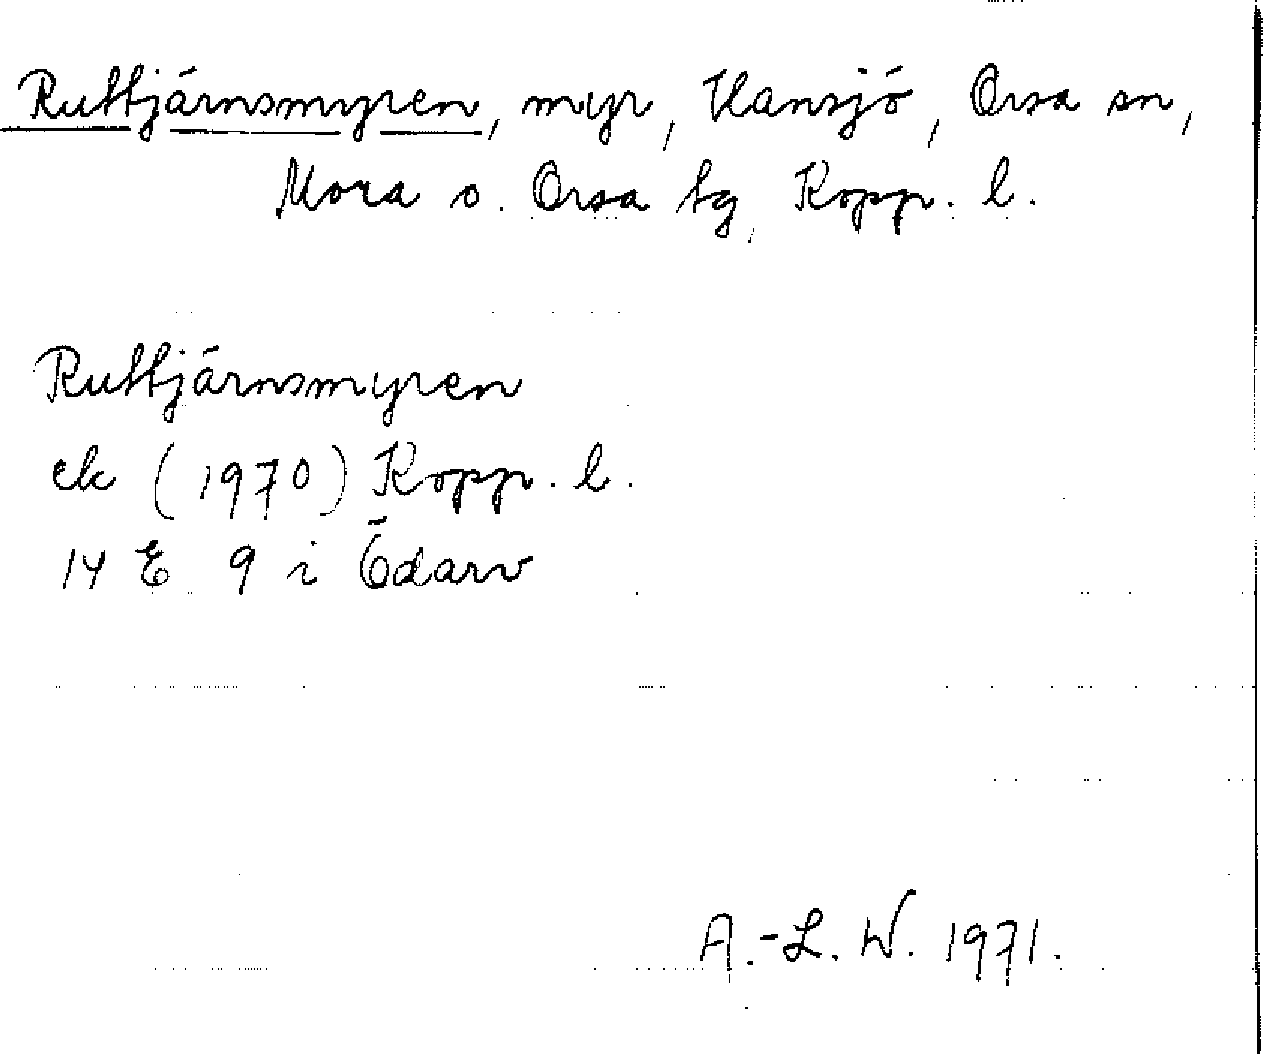 Ruttjärnsmyren, myr, Hansjö, Orsa sn,
Mora o. Orsa tg, Kopp. l.
Ruttjärnsmyren
ek (1970) Kopp. l.
14 E 9 i Ödarv
A.-L. W. 1971.